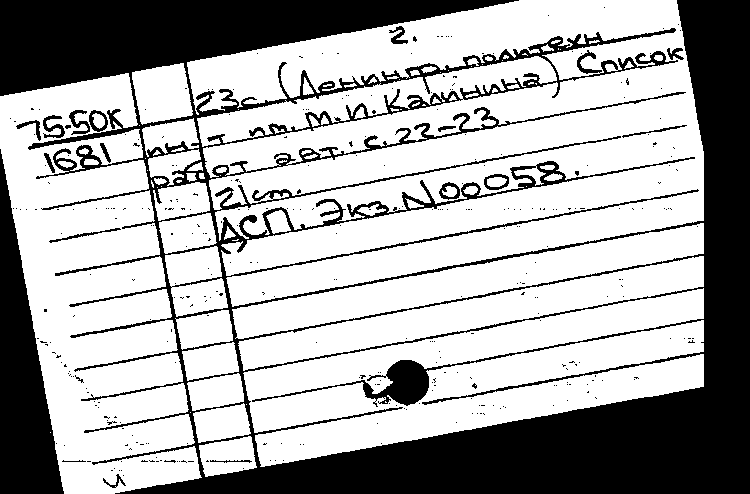 2.
75-50К 23с. (Ленингр. политехн.
1681 ин-т им. М.И. Калинина) Список
работ авт.: с. 22-23.
21 ст.
ДСП. Экз. N00058.
и